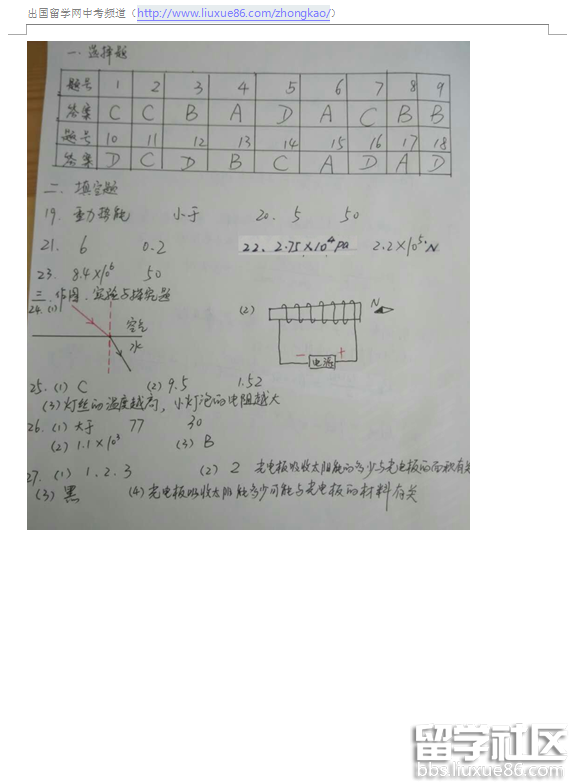 出国留学网中考频道（http://www.liuxue86.com/zhongkao/）
一.选择题
题号 1 2 3 4 5 6 7 8 9
答案 C C B A D A C B B
题号 10 11 12 13 14 15 16 17 18
答案 D C D B C A D A D
二、填空题
19. 重力势能 小于 20. 5 50
21. 6 0.2 22. 2.75×10⁴Pa 2.2×10⁵N
23. 8.4×10⁶ 50
三、作图、实验与探究题
24.(1) 空气 水 (2) N － ＋ 电源
25.(1) C (2) 9.5 1.52
(3)灯丝的温度越高，小灯泡的电阻越大
26.(1)大于 77 30
(2) 1.1×10³ (3) B
27.(1) 1、2、3 (2) 2 光电板吸收太阳能的多少与光电板的面积有关
(3)黑 (4)光电板吸收太阳能多少可能与光电板的材料有关
留学社区
bbs.liuxue86.com